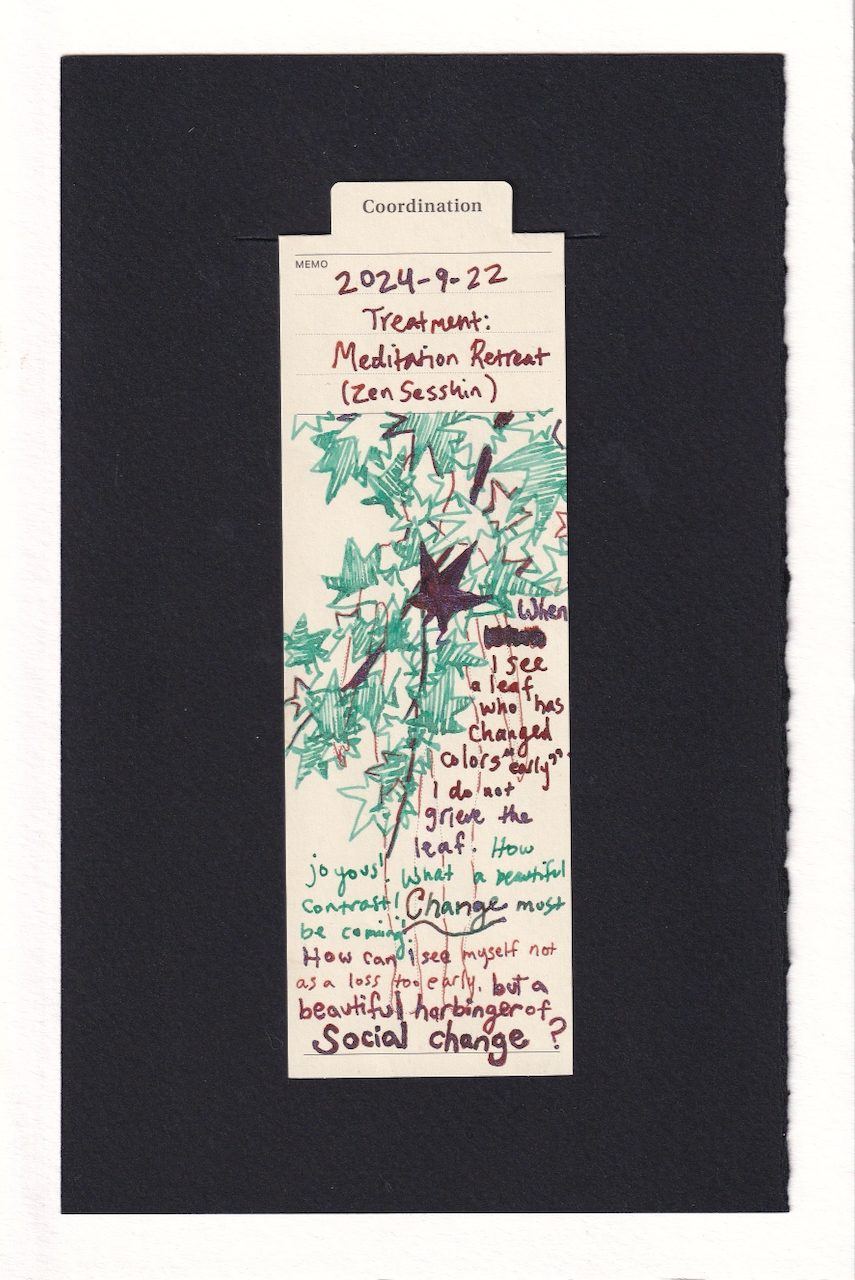 Coordination
MEMO
2024-9-22
Treatment:
Meditation Retreat
(Zen Sesshin)
When
I see
a leaf
who has
changed
colors "early"
I do not
grieve the
leaf. How
joyous! What a beautiful
contrast! Change must
be coming!
How can i see myself not
as a loss too early, but a
beautiful harbinger of
Social change?